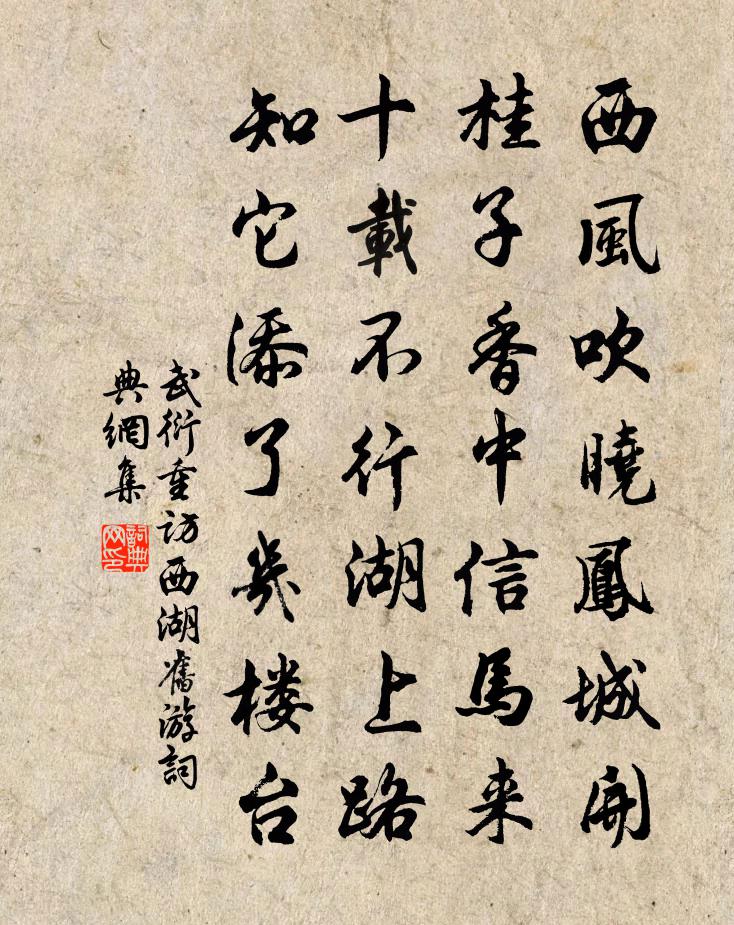 西風吹曉鳳城開
桂子香中信馬来
十載不行湖上路
知它添了幾楼台
武衍重访西湖舊游詞
典網集
詞典网印